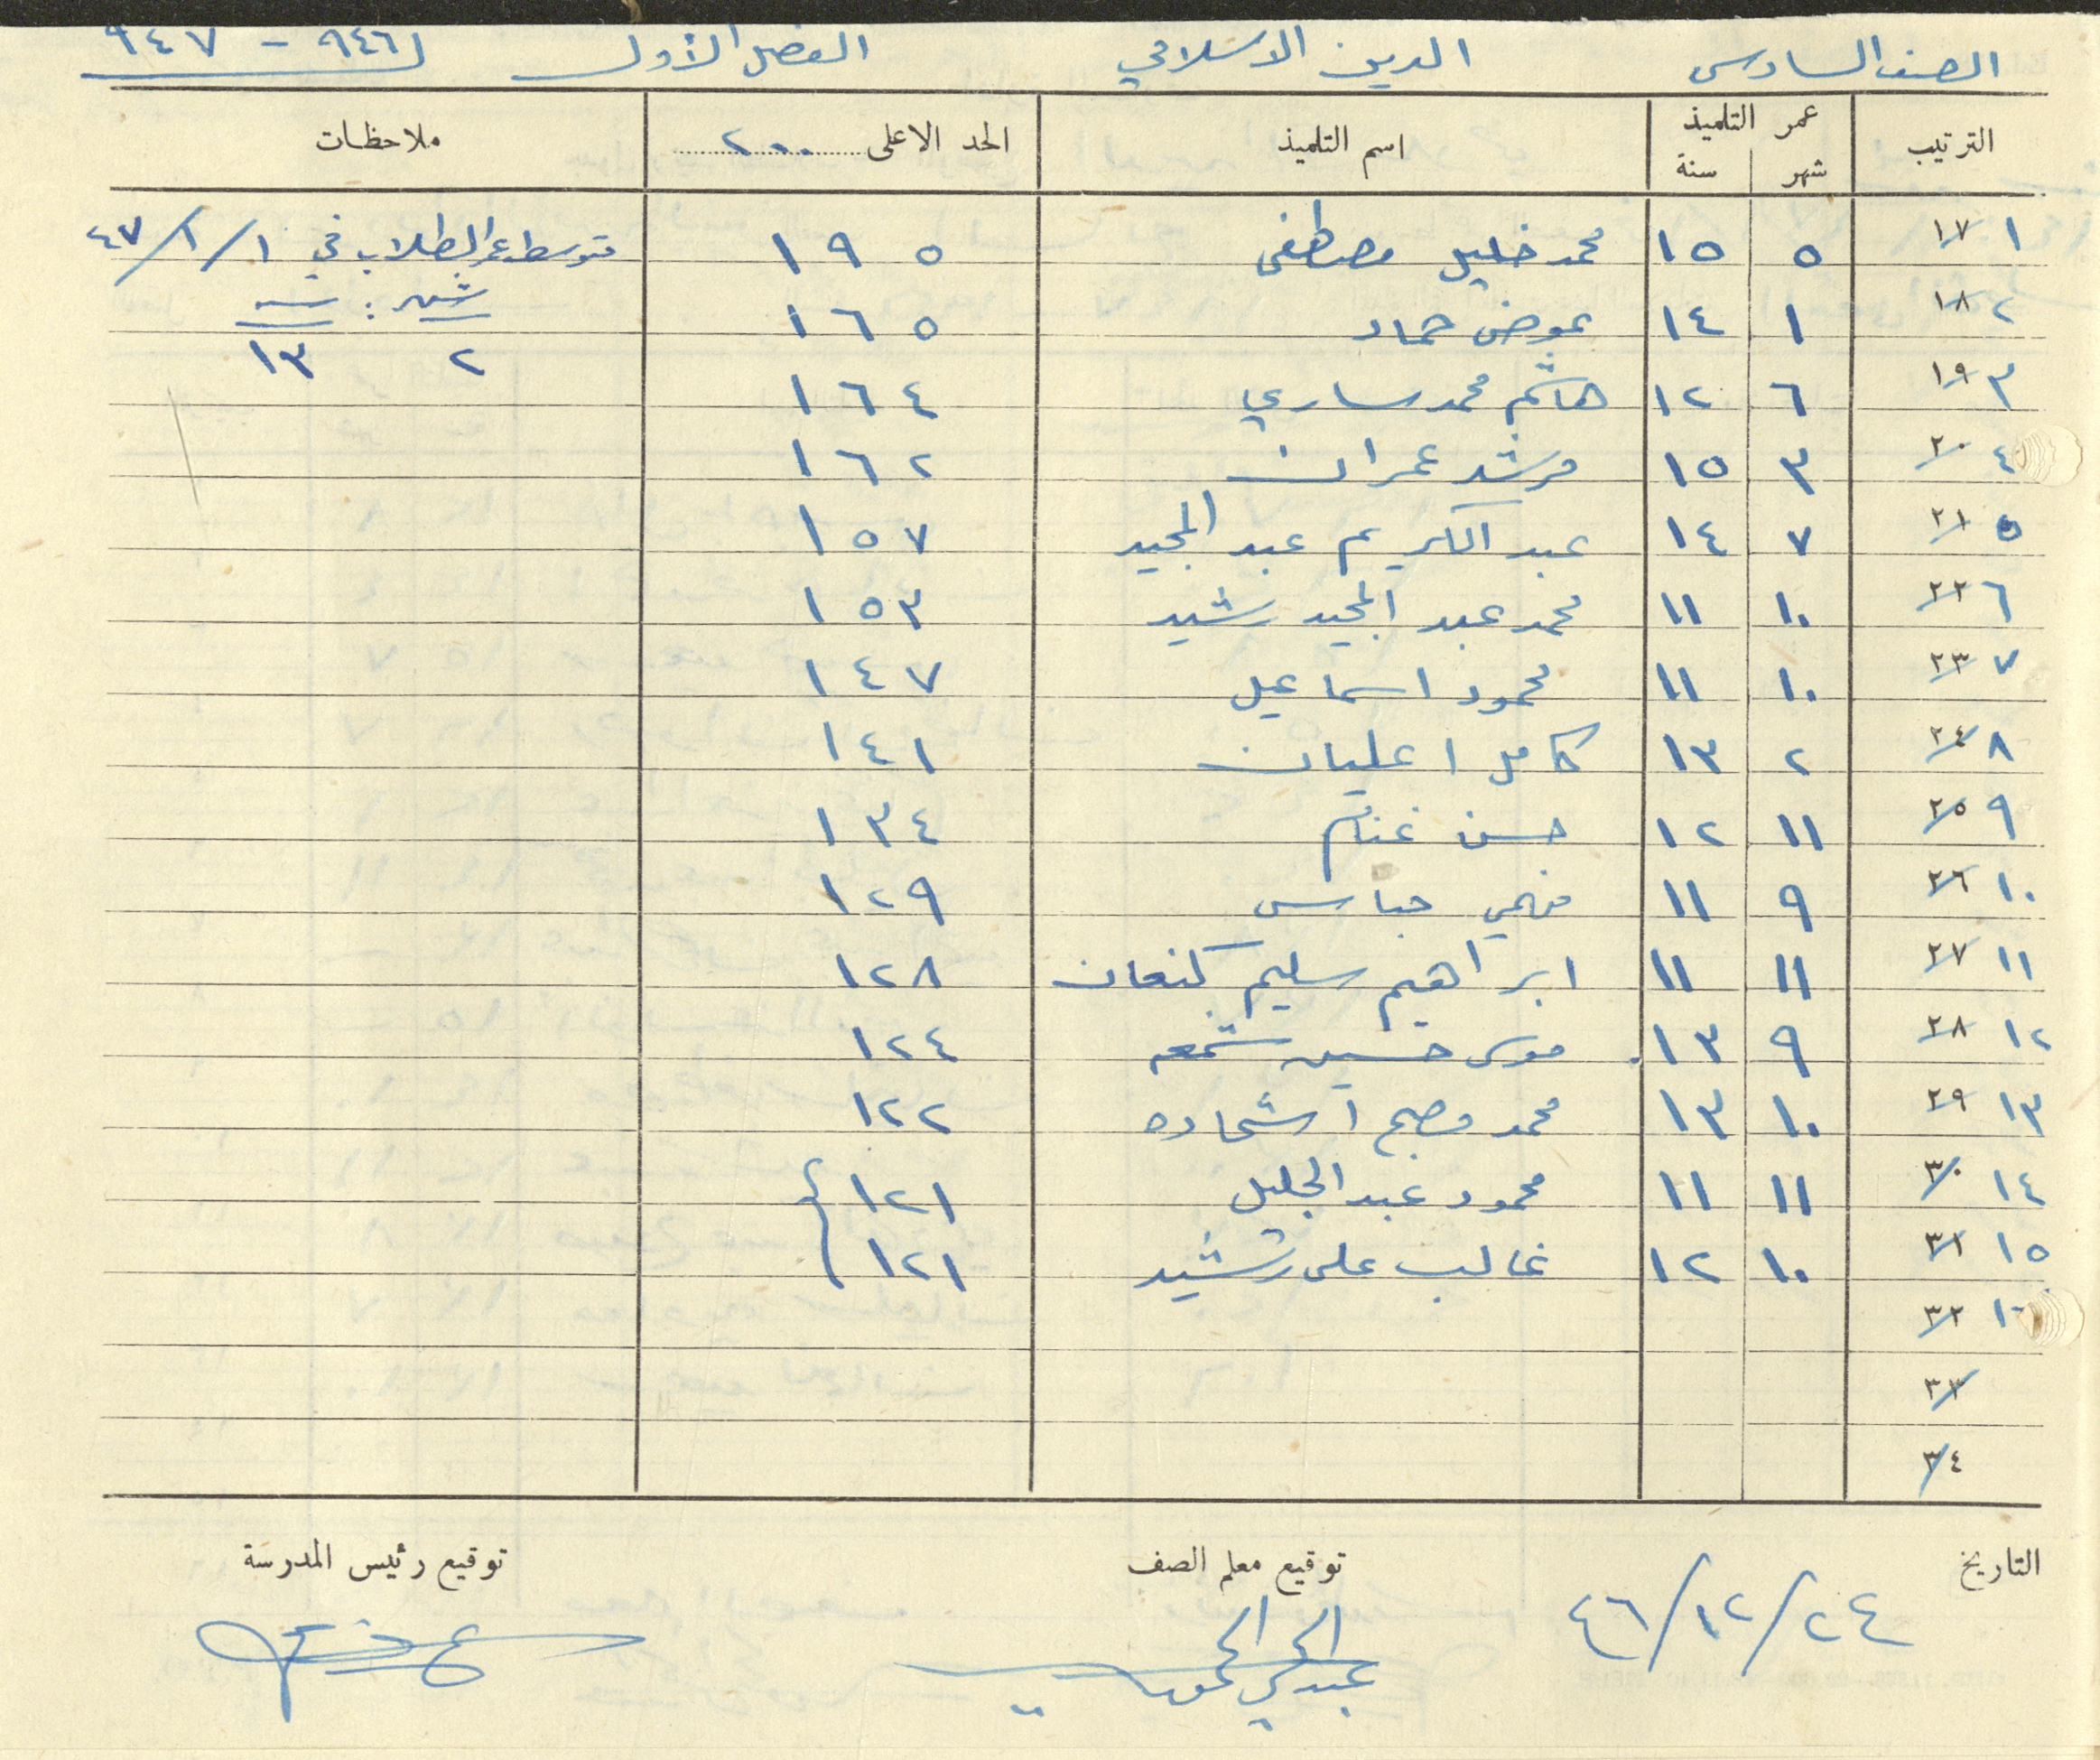 الصف السادس الدين الاسلامي الفصل الأول ٩٤٦ - ٩٤٧
الترتيب عمر التلميذ اسم التلميذ الحد الاعلى ٢٠٠ ملاحظات
شهر سنة
١ ١٧ ٥ ١٥ محمد خليل مصطفى ١٩٥ متوسط عمر الطلاب في ١/١/٤٧
٢ ١٨ ١ ١٤ عوض حماد ١٦٥ شهر : سنة
٣ ١٩ ٦ ١٢ هاشم محمد ساري ١٦٤ ٢ ١٣
٤ ٢٠ ٣ ١٥ مرشد عمران ١٦٢
٥ ٢١ ٧ ١٤ عبد الكريم عبد المجيد ١٥٧
٦ ٢٢ ١٠ ١١ محمد عبد المجيد رشيد ١٥٣
٧ ٢٣ ١٠ ١١ محمود اسماعيل ١٤٧
٨ ٢٤ ٢ ١٣ كامل اعليان ١٤١
٩ ٢٥ ١١ ١٢ حسن غنام ١٣٤
١٠ ٢٦ ٩ ١١ فهمي ١٢٩
١١ ٢٧ ١١ ١١ ابراهيم سليم كنعان ١٢٨
١٢ ٢٨ ٩ ١٣ موسى حسين شمعه ١٢٤
١٣ ٢٩ ١٠ ١٣ محمد مصبح اشحاده ١٢٢
١٤ ٣٠ ١١ ١١ محمود عبد الجليل ١٢١
١٥ ٣١ ١٠ ١٢ غالب علي رشيد ١٢١
٣٢
٣٣
٣٤
التاريخ توقيع معلم الصف توقيع رئيس المدرسة
٢٤/١٢/٤٦